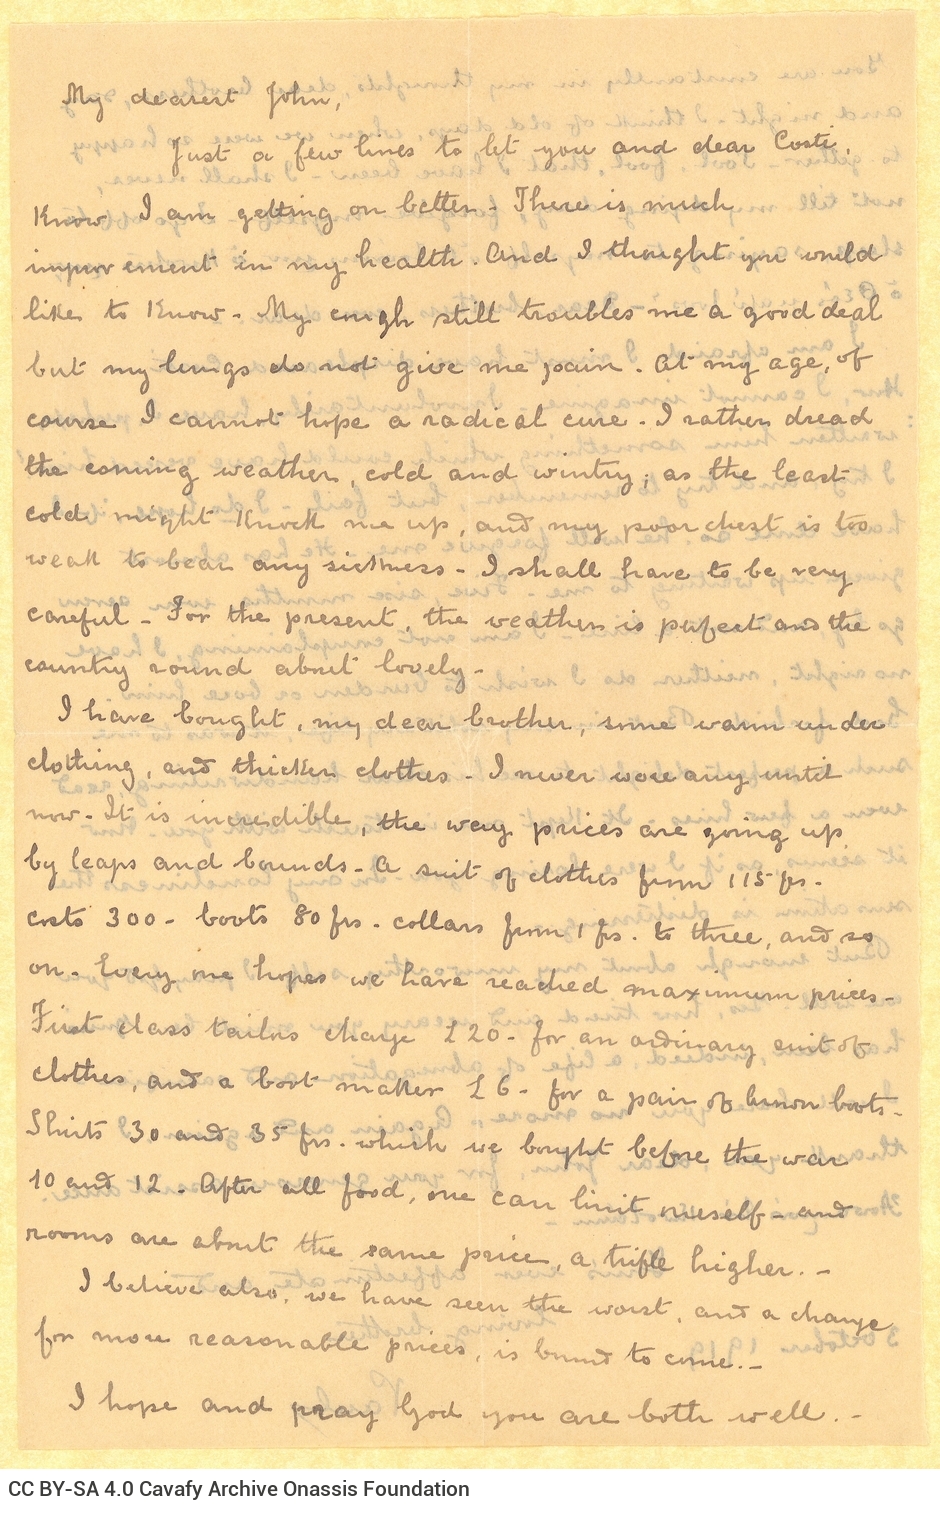 My dearest John,
Just a few lines to let you and dear Costi,
Know I am getting on better - There is much
improvement in my health. And I thought you would
like to Know - My cough still troubles me a good deal
but my lungs do not give me pain. At my age, of
course I cannot hope a radical cure. I rather dread
the coming weather, cold and wintry; as the least
cold might Knock me up, and my poor chest is too
weak to bear any sickness - I shall have to be very
careful - For the present, the weather is perfect and the
country round about lovely -
I have bought, my dear brother, some warm under
clothing, and thicker clothes - I never wore any until
now - It is incredible, the way prices are going up
by leaps and bounds - A suit of clothes from 115 frs.
costs 300 - boots 80 frs. collars from 1 frs. to three, and so
on. Every one hopes we have reached maximum prices -
First class tailors charge £20 - for an ordinary suit of
clothes, and a boot maker £6 - for a pair of boots -
Shirts 30 and 35 frs. which we bought before the war
10 and 12. After all food, one can limit oneself - and
rooms are about the same price, a trifle higher. -
I believe also, we have seen the worst, and a change
for more reasonable prices, is bound to come. -
I hope and pray God you are both well. -
CC BY-SA 4.0 Cavafy Archive Onassis Foundation